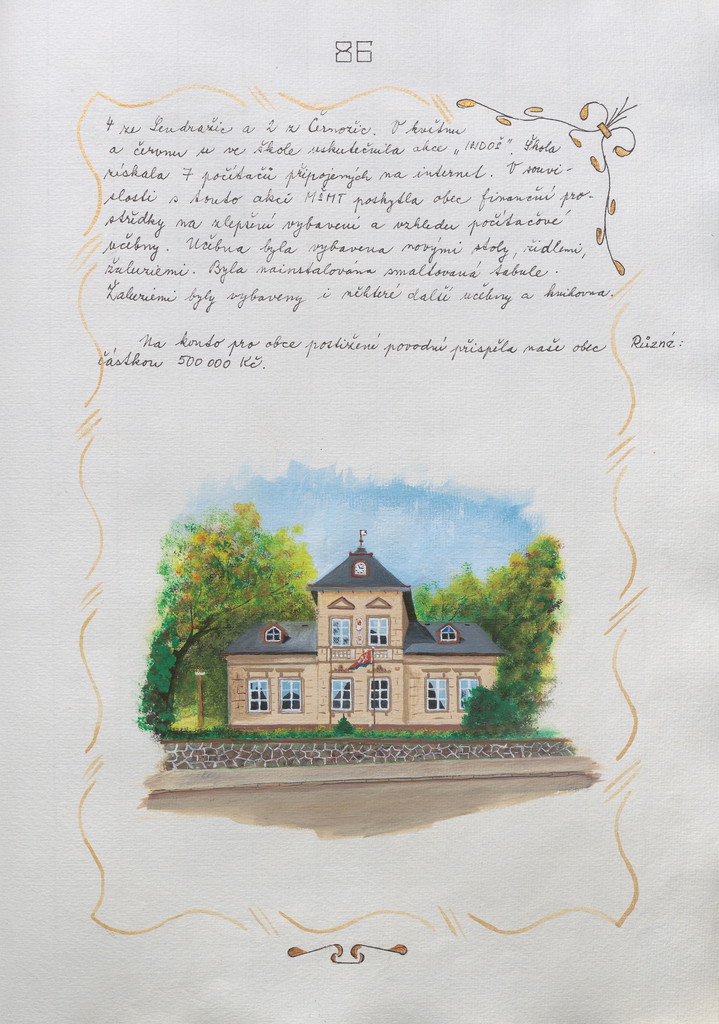 86
4 ze Sendražic a 2 z Černožic. V květnu
a červnu se ve škole uskutečnila akce „INDOŠ". Škola
získala 7 počítačů připojených na internet. V souvi-
slosti s touto akcí MŠMT poskytla obec finanční pro-
středky na zlepšení vybavení a vzhledu počítačové
učebny. Učebna byla vybavena novými stoly, židlemi,
žaluziemi. Byla nainstalována smaltovaná tabule.
Žaluziemi byly vybaveny i některé další učebny a knihovna.
Různé:
Na konto pro obce postižení povodní přispěla naše obec
částkou 500 000 Kč.